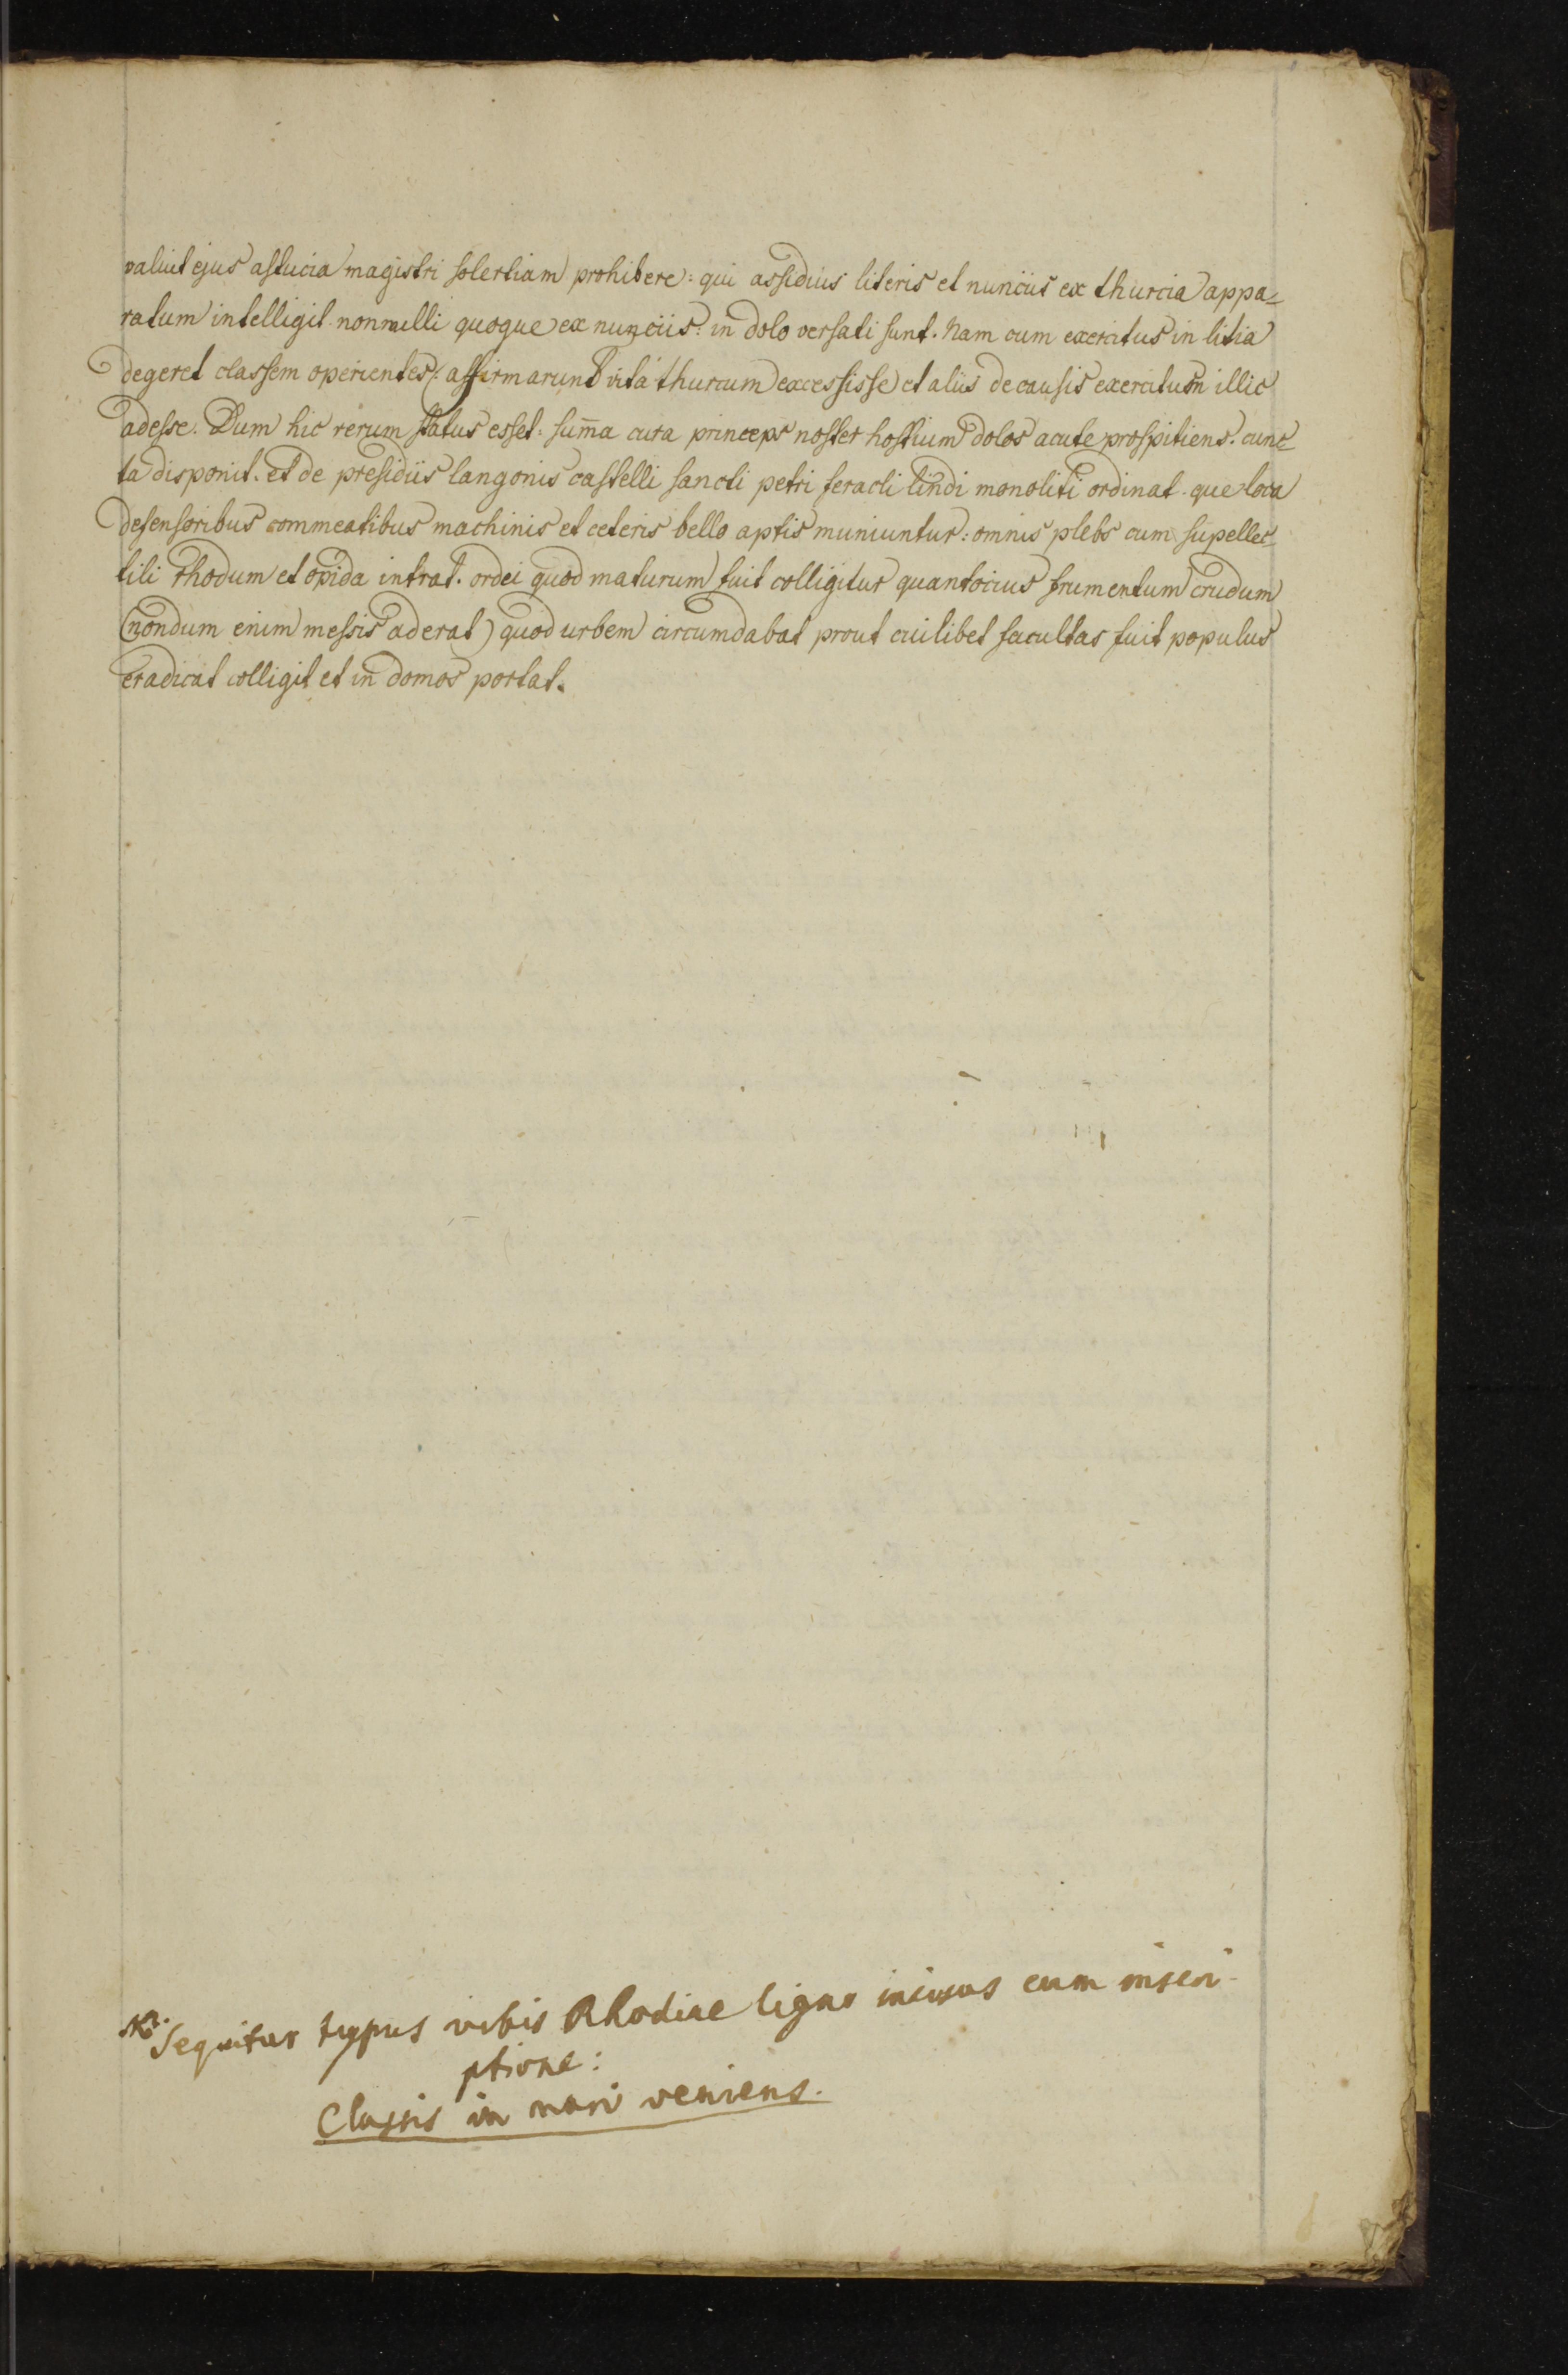 valuit ejus astucia magistri solertiam prohibere: qui assiduis literis et nunciis ex thurcia appa=
ratum intelligit. nonnulli quoque ex nunciis: in dolo versati sunt. Nam cum exercitus in litia
degeret classem operientes: affirmarunt vita thurcum excessisse et aliis de causis exercitum illic
adesse. Dum hic rerum status esset: sum̄a cura princeps noster hostium dolos acute prospitiens. cunc=
ta disponit. et de presidiis langonis castelli sancti petri feracli lindi monoliti ordinat. que loca
defensoribus commeatibus machinis et ceteris bello aptis muniuntur: omnis plebs cum supellec=
tili rhodum et opida intrat. ordei quod maturum fuit colligitur quantocius frumentum crudum
(nondum enim messis aderat) quod urbem circumdabat prout cuilibet facultas fuit populus
eradicat colligit et in domos portat.
Sequitur typus urbis Rhodiae ligno incisus cum inscri-
ptione:
Classis in mari veniens.